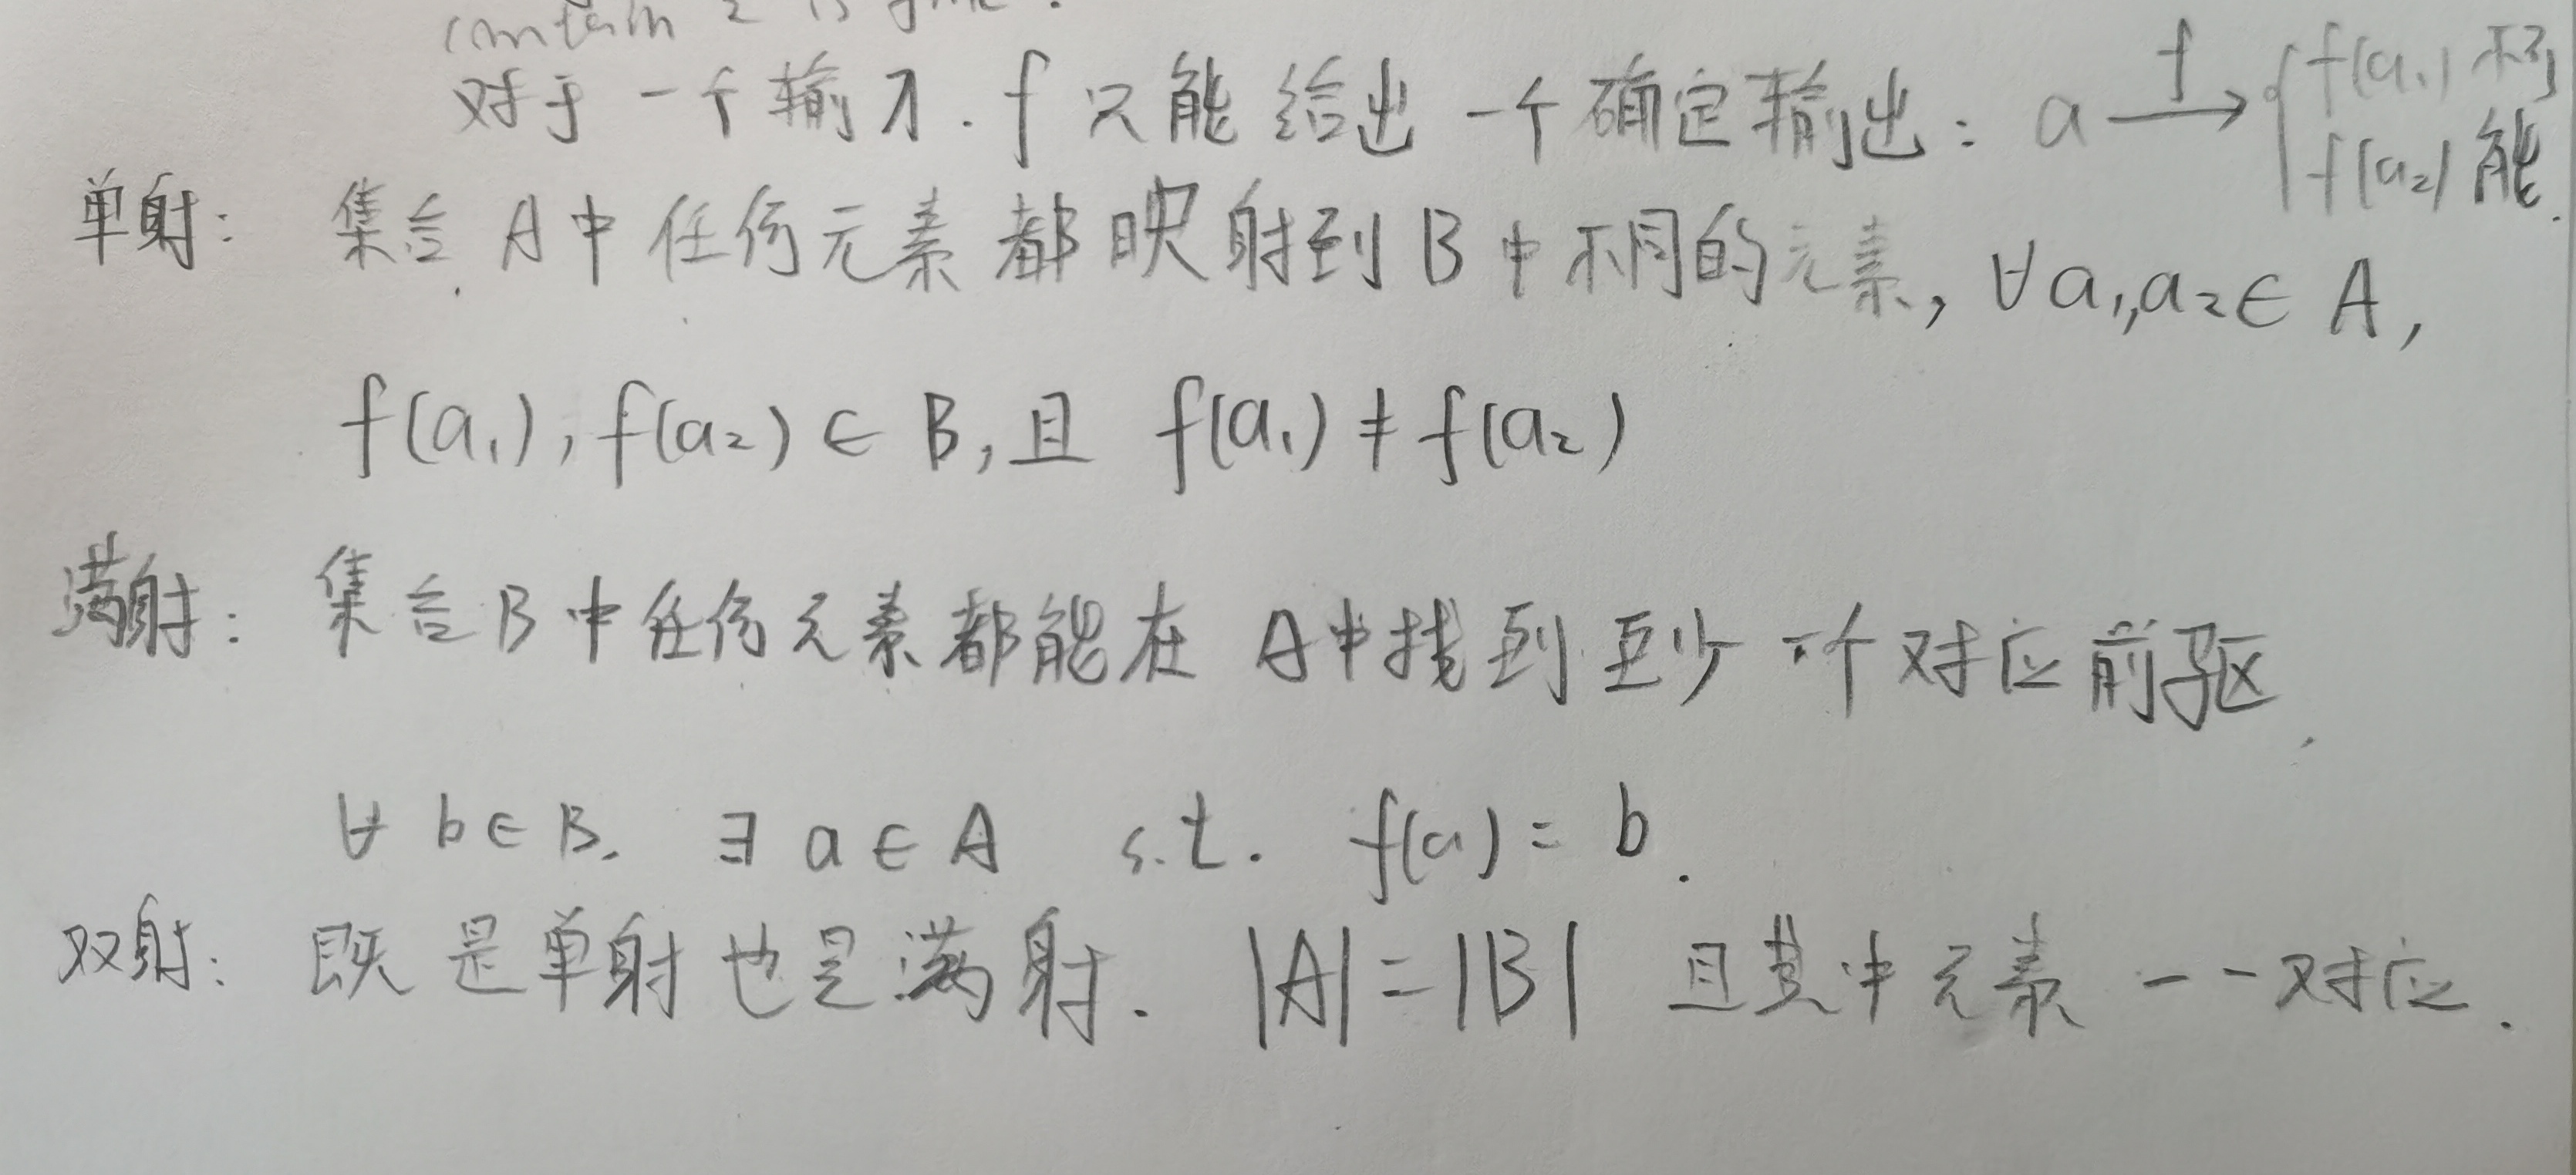 contain 2 is
对于一个输入. f 只能给出一个确定输出: a —f→ { f(a₁) 不可
f(a₂) 能.
单射: 集合 A 中任何元素都映射到 B 中不同的元素, ∀a₁,a₂∈ A,
f(a₁), f(a₂) ∈ B, 且 f(a₁) ≠ f(a₂)
满射: 集合 B 中任何元素都能在 A 中找到至少一个对应前驱,
∀ b∈B. ∃ a∈A s.t. f(a) = b.
双射: 既是单射也是满射. |A|=|B| 且其中元素一一对应.